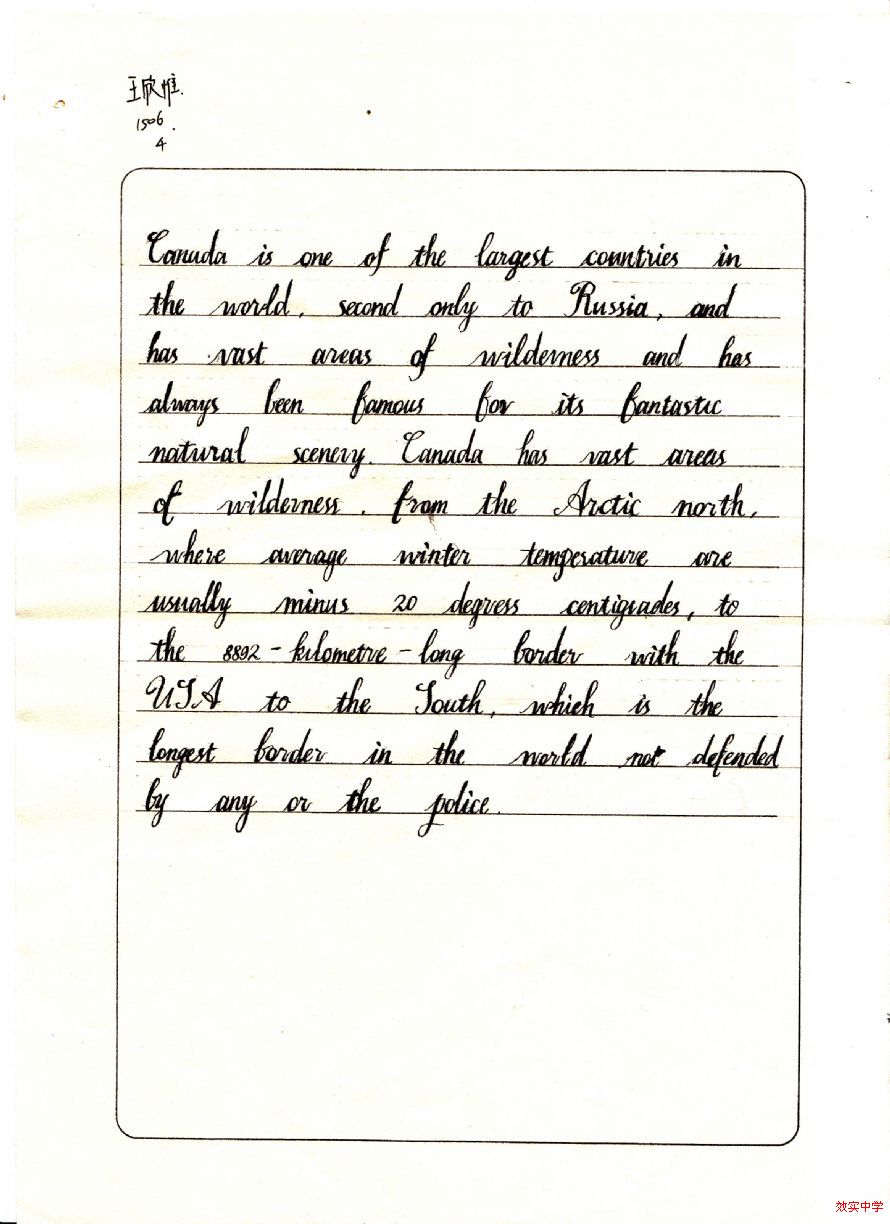 王欣雅.
1506.
4
Canada is one of the largest countries in
the world, second only to Russia, and
has vast areas of wilderness and has
always been famous for its fantastic
natural scenery. Canada has vast areas
of wilderness, from the Arctic north,
where average winter temperature are
usually minus 20 degress centigrades, to
the 8892-kilometre-long border with the
USA to the South, which is the
longest border in the world not defended
by any or the police.
效实中学